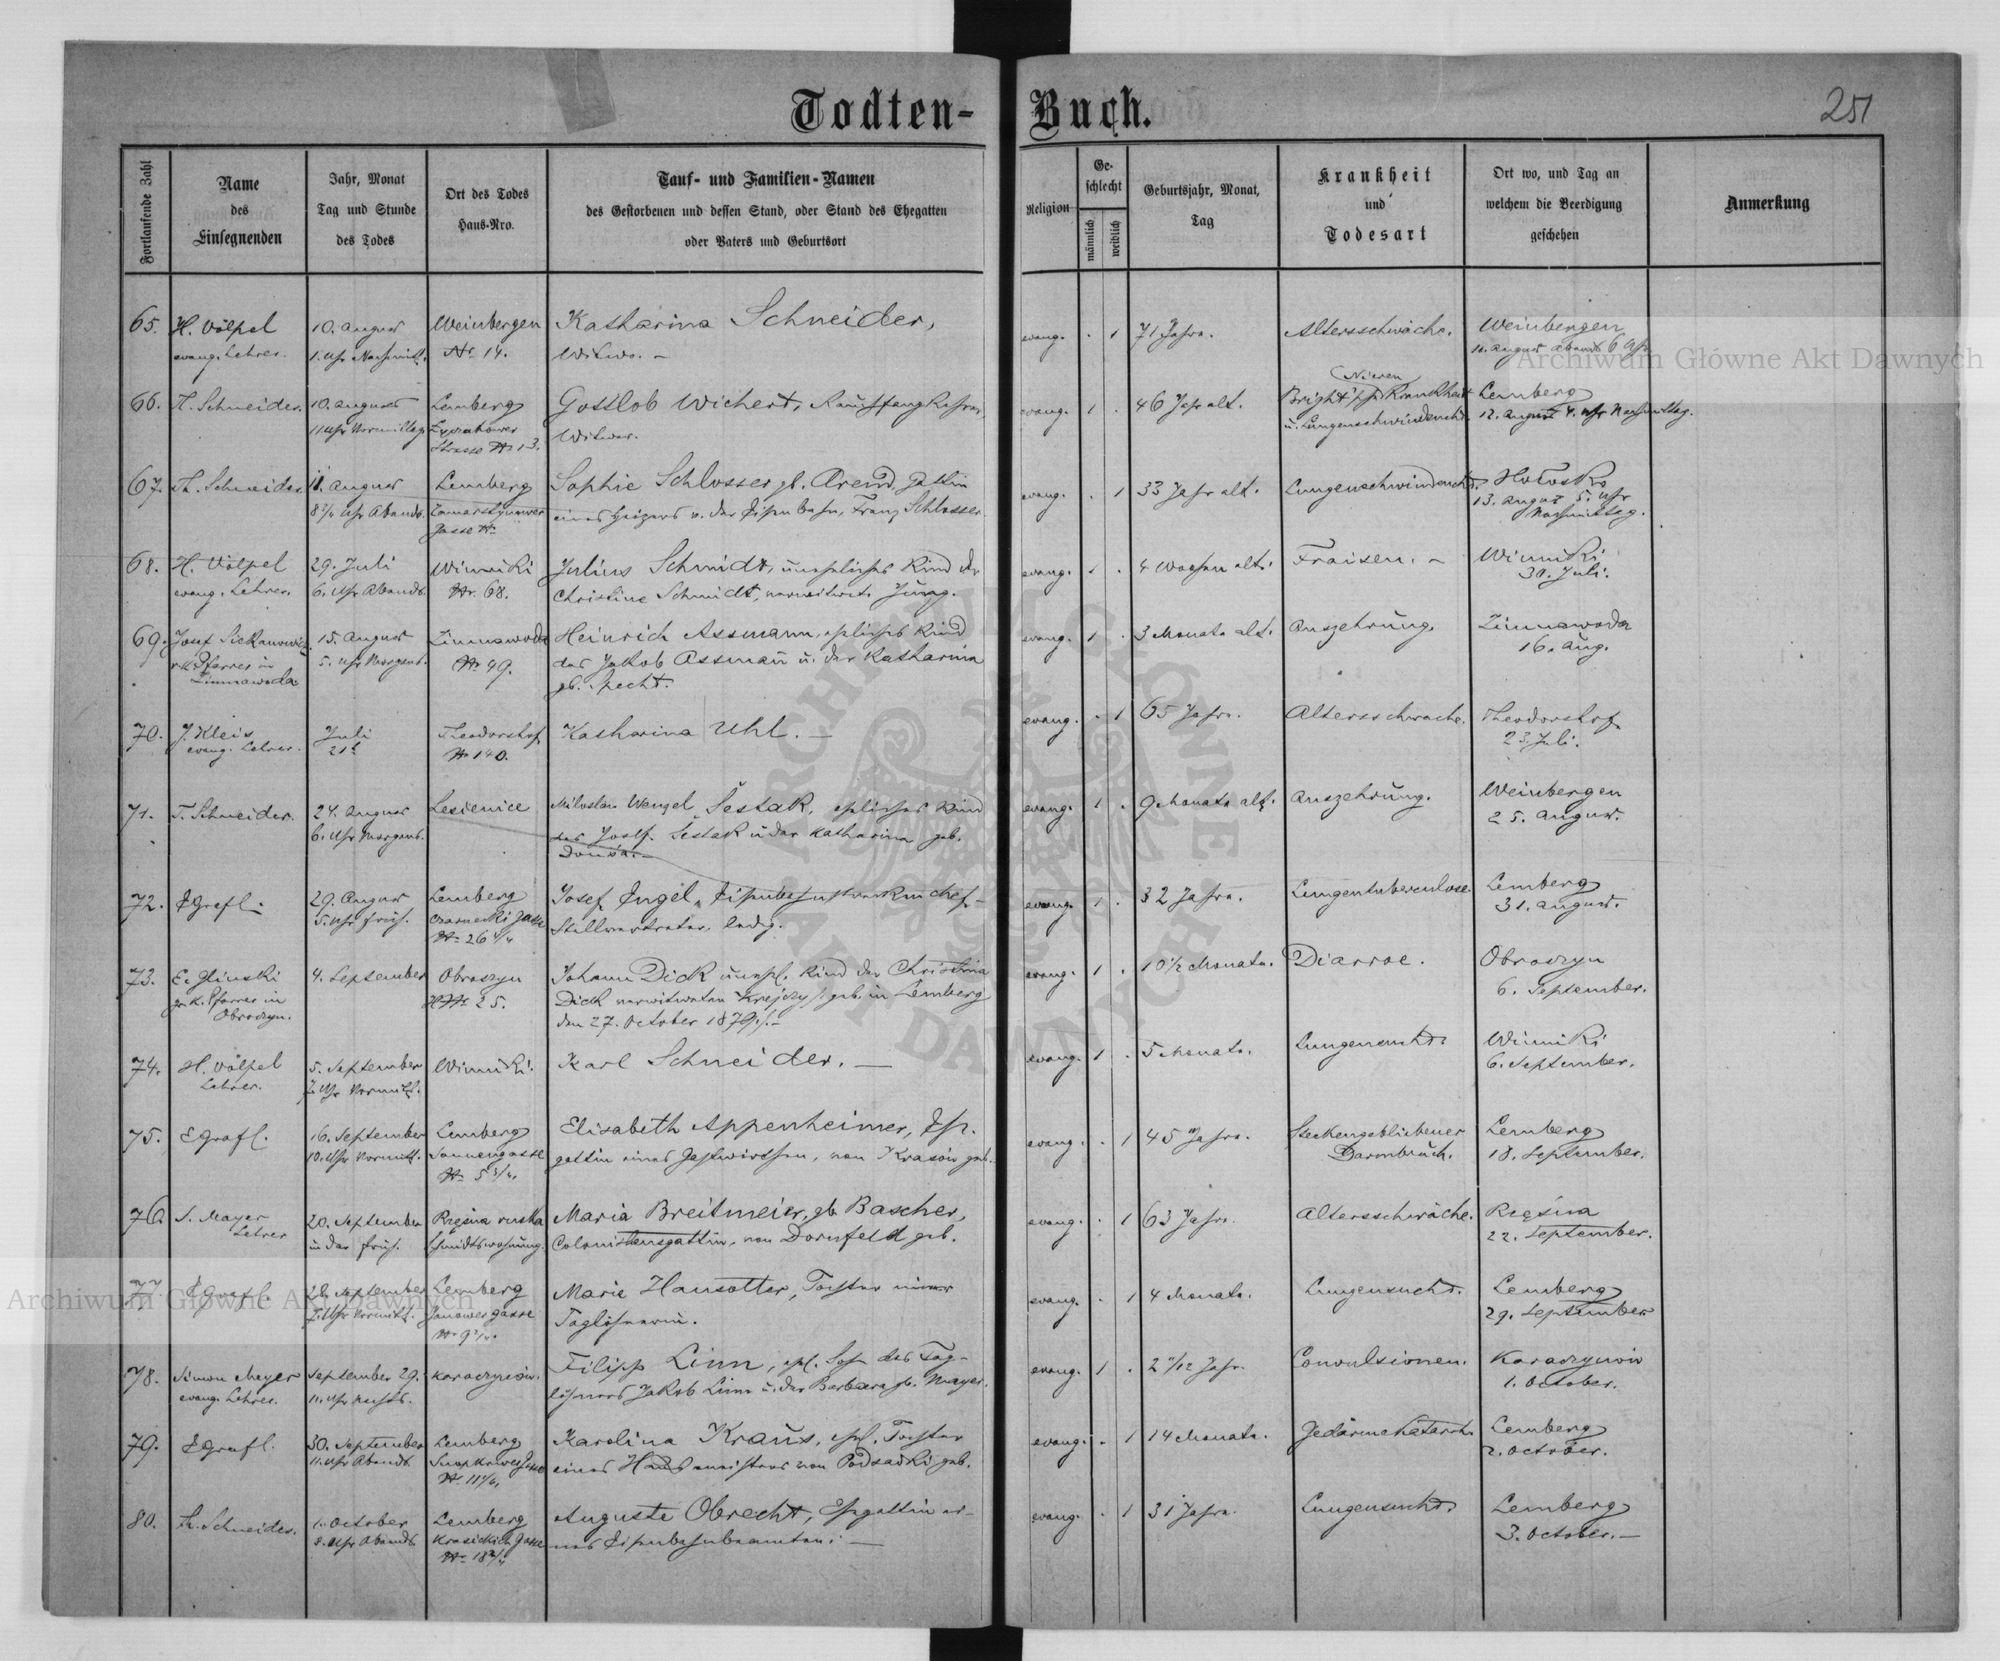 Todten-Buch.
251
Fortlaufende Zahl
Name
des
Einsegnenden
Jahr, Monat
Tag und Stunde
des Todes
Ort des Todes
Haus-Nro.
Tauf- und Familien-Namen
des Gestorbenen und dessen Stand, oder Stand des Ehegatten
oder Vaters und Geburtsort
Religion
Ge-
schlecht
männlich
weiblich
Geburtsjahr, Monat,
Tag
Krankheit
und
Todesart
Ort wo, und Tag an
welchem die Beerdigung
geschehen
Anmerkung
65. H. Völpel 10. August Weinbergen Katharina Schneider, evang. . 1 71 Jahre. Altersschwäche. Weinbergen
evang. Lehrer. 1. Uhr Nachmitt. Nr. 14. Witwe. – 12. August Abends 6 Uhr
Nieren
66. Th. Schneider. 10. August Lemberg Gottlob Wichert, evang. 1 . 46 Jahr alt. Bright'sche Krankheit Lemberg
11 Uhr Vormittag Witwer. u. Lungenschwindsucht. 12. August 4. Uhr Nachmittag.
Strasse Nr 13.
67. Th. Schneider 11. August Lemberg Sophie Schlosser gb. Arend, Gattin evang. . 1 33 Jahr alt. Lungenschwindsucht. Hołosko
8 3/4 Uhr Abends. Zamarstynower eines Heizers v. der Eisenbahn, Franz Schlosser. 13. August 5. Uhr
Gasse Nr Nachmittag.
68. H. Völpel 29. Juli Winniki Julius Schmidt, uneheliches Kind der evang. 1 . 4 Wochen alt. Fraisen. – Winniki
evang. Lehrer. 6. Uhr Abends. Nr. 68. Christine Schmidt, verwitwete Jung. 30. Juli.
69. Josef 15. August Zimnawoda Heinrich Assmann, eheliches Kind evang. 1 . 3 Monate alt. Auszehrung. Zimnawoda
r.k. Pfarrer in 5. Uhr Morgens. Nr 49. des Jakob Assmann u. der Katharina 16. Aug.
Zimnawoda gb. Specht.
70. J. Kleis Juli Theodorshof Katharina Uhl. – evang. . 1 65 Jahre. Altersschwäche. Theodorshof
evang. Lehrer. 21t Nr 140. 23. Juli.
71. T. Schneider. 24. August Lesienice Miloslav Wenzel Šestak, eheliches Kind evang. 1 . 9 Monate alt. Auszehrung. Weinbergen
6. Uhr Morgens. des Josef. Šestak u der Katharina geb. 25. August.
Douša. –
72. E Grafl. 29. August Lemberg Josef Engel, evang. 1 . 32 Jahre. Lungentuberculose. Lemberg
5. Uhr früh. Czarnecki Gasse Stellvertreter, ledig. 31. August.
Nr 26 1/4
73. E. Glinski 4. September Obroszyn Johann Dick unehl. Kind der Christina evang. 1 . 10 1/2 Monate. Diarroe. Obroszyn
gr.k. Pfarrer in 25. Dick verwitweten Krejczy, geb. in Lemberg 6. September.
Obroszyn. den 27. October 1879. –
74. H. Völpel 5. September Winniki. Karl Schneider. — evang. 1 . 5 Monate. Lungensucht. Winniki
Lehrer. 7. Uhr Vormitt. 6. September.
75. E Grafl. 16. September Lemberg Elisabeth Appenheimer, Ehe- evang. . 1 45 Jahre. Steckengebliebener Lemberg
10. Uhr Vormitt. Sonnengasse gattin eines Gastwirthen, von Krasów geb. Darmbruch. 18. September.
Nr 5 3/4.
76. S. Mayer 20. September Rzęsna ruska Maria Breitmeier, gb Bascher, evang. . 1 63 Jahre. Altersschwäche. Rzęsna
Lehrer in der Früh. Schmidtswohnung. Colonistensgattin, von Dornfeld geb. 22. September.
77. E Grafl. 28. September Lemberg Marie Hansotter, Tochter einer evang. . 1 4 Monate. Lungensucht. Lemberg
7. Uhr Vormitt. Janower gasse Taglöhnerin. 29. September
78. Simon Mayer September 29. Karaczynów. Filipp Linn, ehl. Sohn des Tag- evang. 1 . 2 11/12 Jahr. Convulsionen. Karaczynów
evang. Lehrer. 11. Uhr Nachts. löhners Jakob Linn u. der Barbara gb. Mayer. 1. October.
79. E Grafl. 30. September Lemberg Karolina Kraus, ehl. Tochter evang. . 1 14 Monate. Gedärmekatarrh. Lemberg
11. Uhr Abends. eines Hausmeisters von Podsadki geb. 2. October.
80. Th. Schneider. 1. October Lemberg Auguste Obrecht, Ehegattin ei- evang. . 1 31 Jahre. Lungensucht. Lemberg
8. Uhr Abends Krasickich Gasse nes Eisenbahnbeamten. — 3. October. –
Nr 18 3/4
Archiwum Główne Akt Dawnych
Archiwum Główne Akt Dawnych
ARCHIWUM GŁÓWNE AKT DAWNYCH